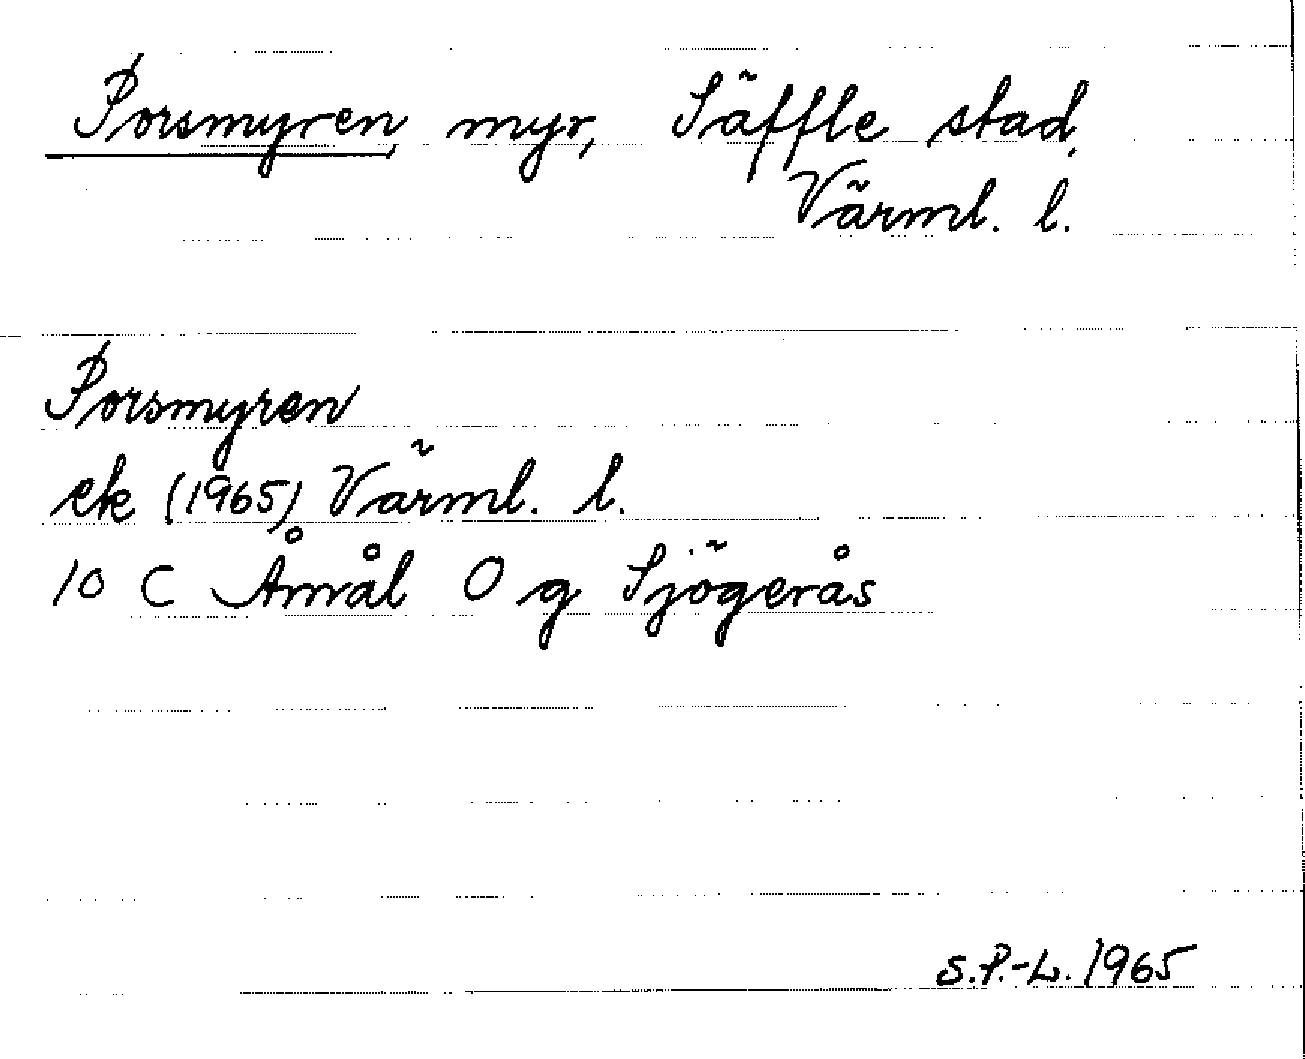 Porsmyren, myr, Säffle stad,
Värml. l.
Porsmyren
ek (1965) Värml. l.
10 C Åmål O g Sjögerås
S.P.-L. 1965